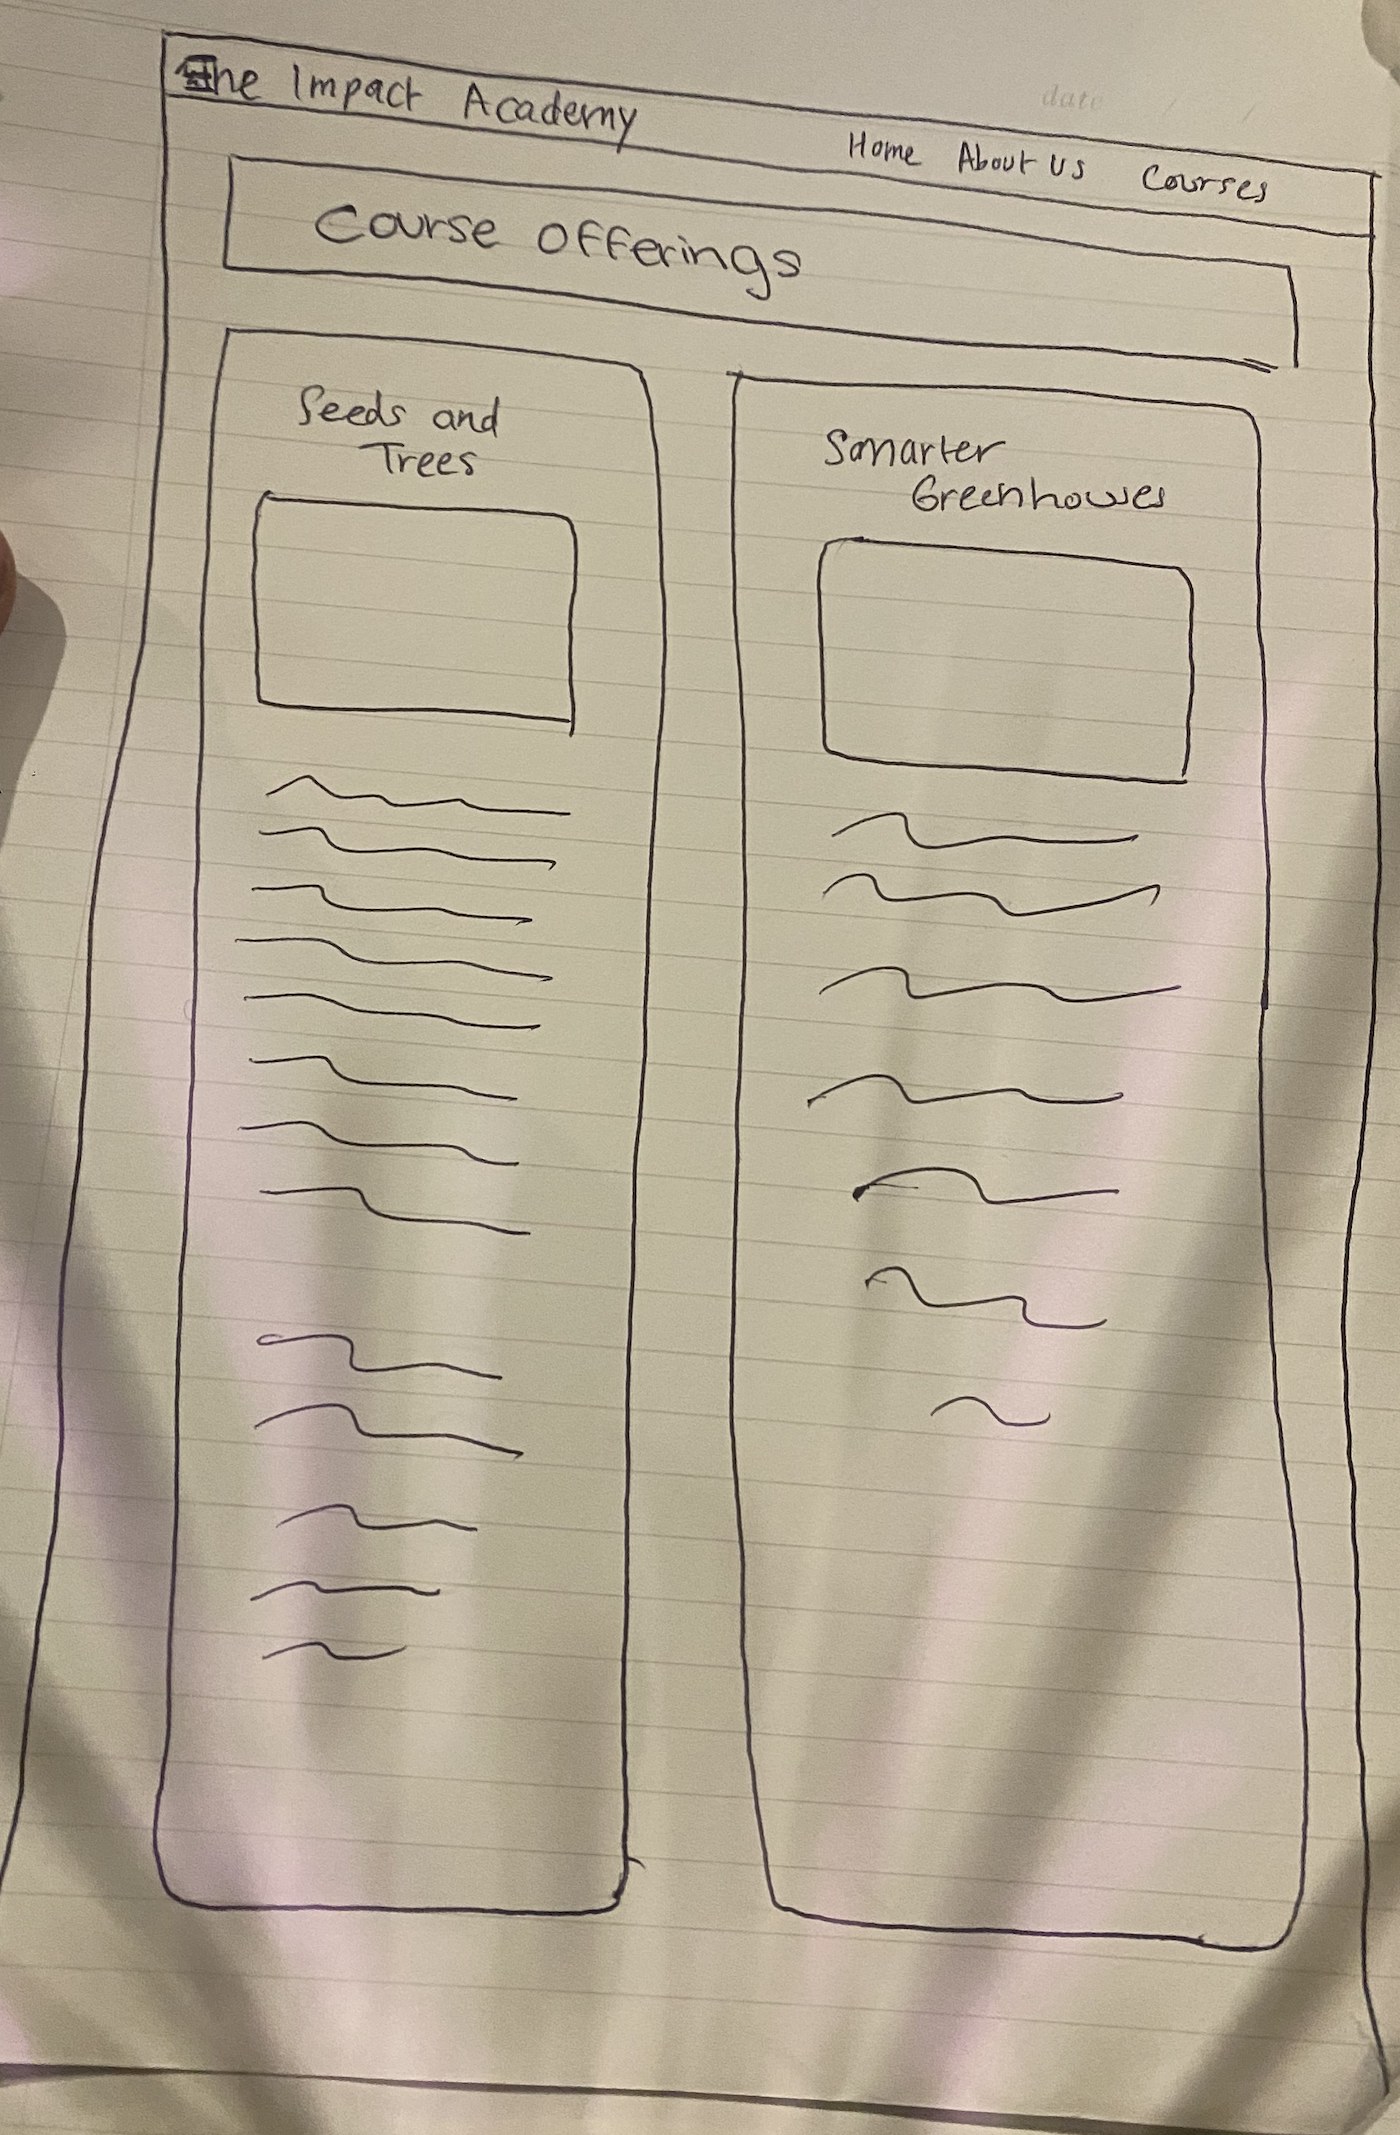 The Impact Academy
Home About Us Courses
date / /
Course Offerings
Seeds and
Trees
Smarter
Greenhouses